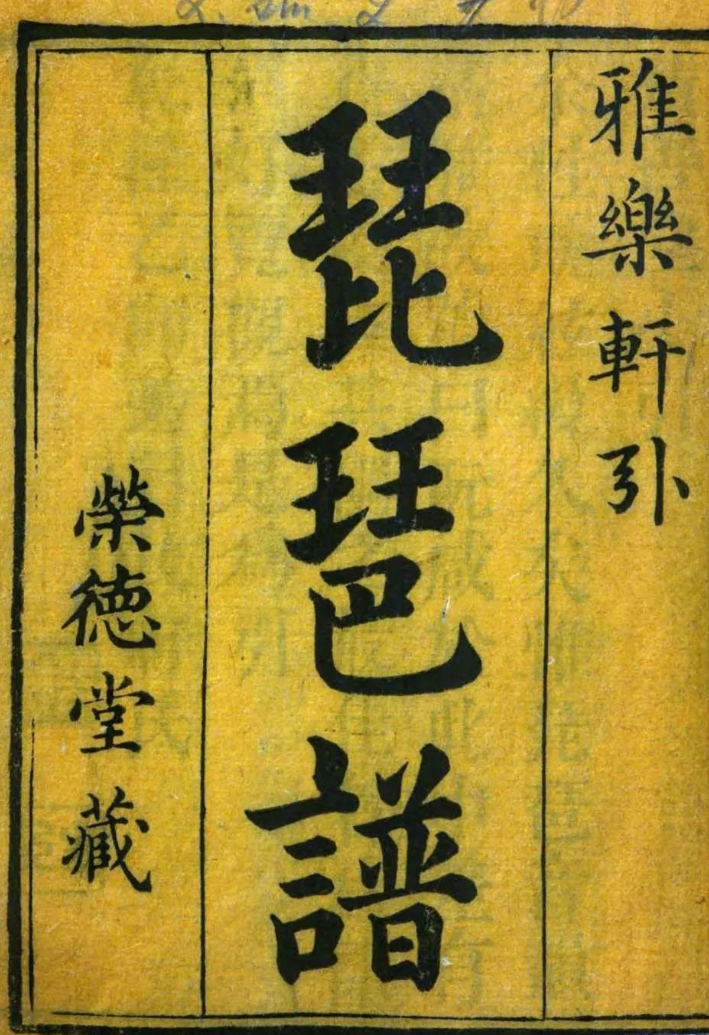 雅樂軒引
琵琶譜
榮德堂藏